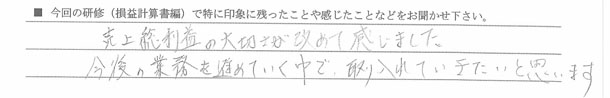 ■ 今回の研修（損益計算書編）で特に印象に残ったことや感じたことなどをお聞かせ下さい。
売上総利益の大切さが改めて感じました。
今後の業務を進めていく中で、取り入れていきたいと思います